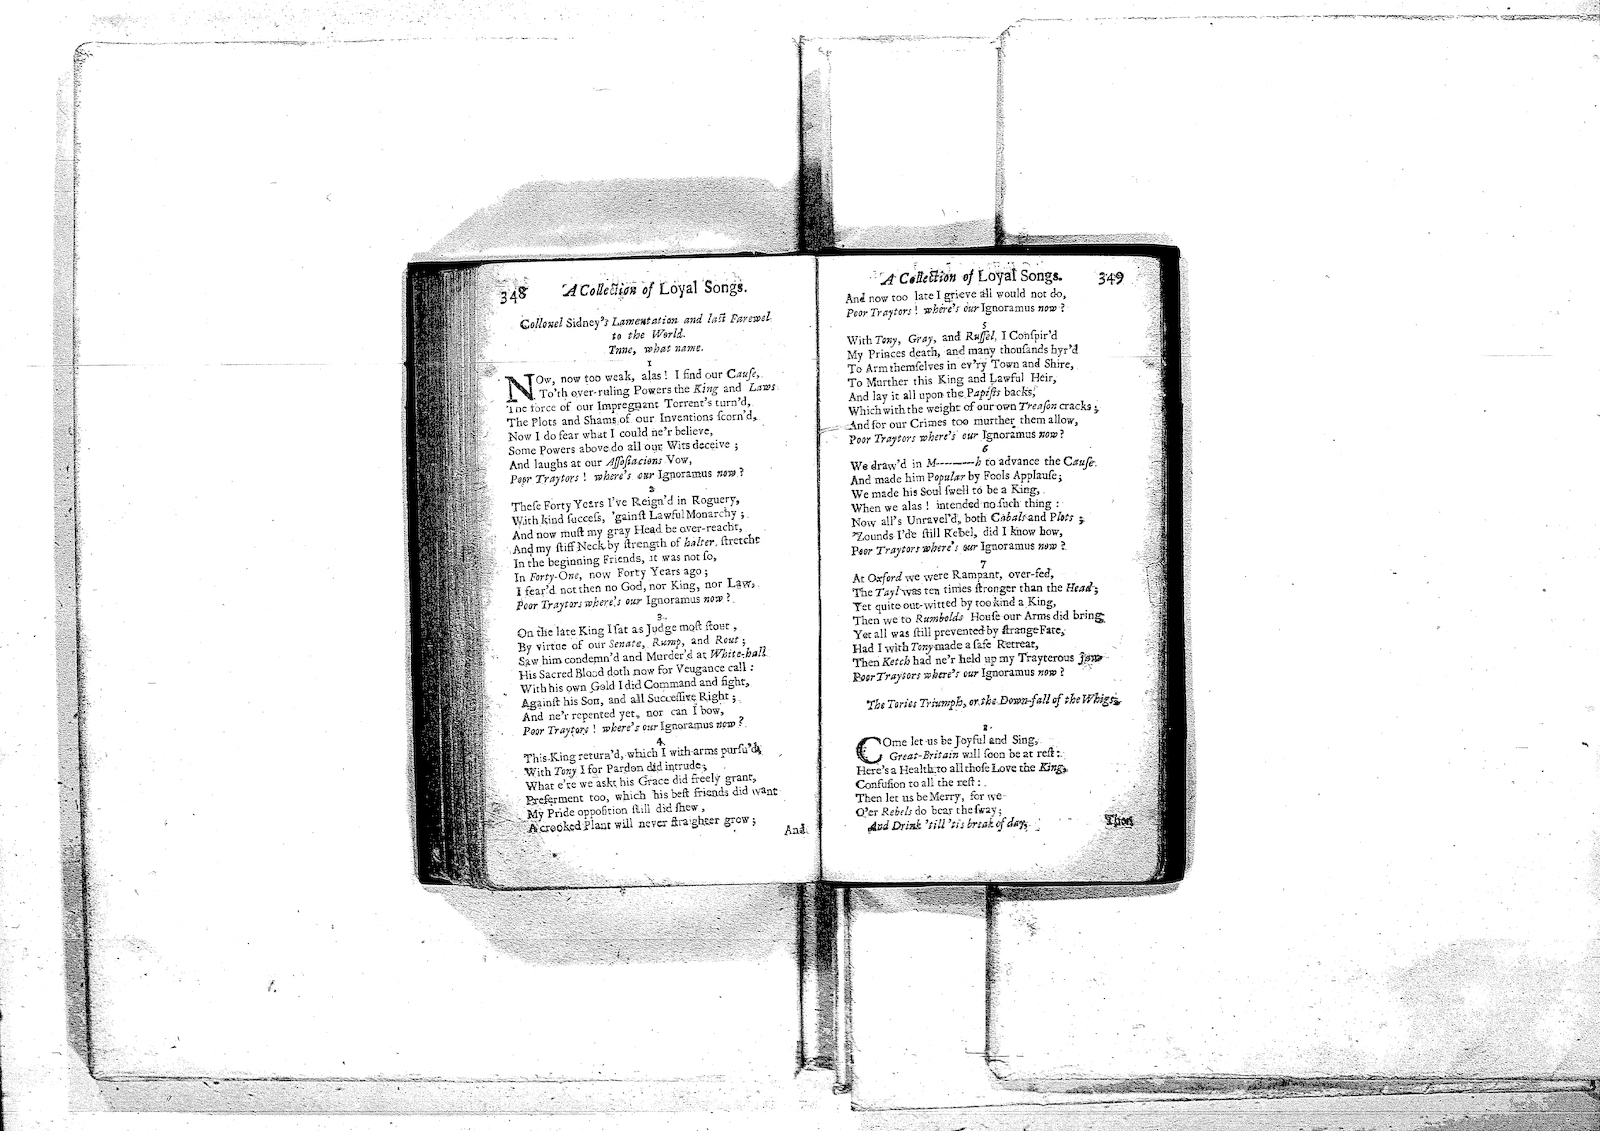 348 A Collection of Loyal Songs.
Collonel Sidney's Lamentation and last Farewel
to the World.
Tnne, what name.
1
NOw, now too weak, alas! I find our Cauſe,
To'th over-ruling Powers the King and Laws
The force of our Impregnant Torrent's turn'd,
The Plots and Shams of our Inventions ſcorn'd,
Now I do fear what I could ne'r believe,
Some Powers above do all our Wits deceive;
And laughs at our Aſſoſiacions Vow,
Poor Traytors! where's our Ignoramus now?
2
Theſe Forty Years I've Reign'd in Roguery,
With kind ſucceſs, 'gainſt Lawful Monarchy;
And now muſt my gray Head be over-reacht,
And my ſtiff Neck by ſtrength of halter ſtretcht
In the beginning Friends, it was not ſo,
In Forty-One, now Forty Years ago;
I fear'd not then no God, nor King, nor Law,
Poor Traytors where's our Ignoramus now?
3
On the late King I ſat as Judge moſt ſtout,
By virtue of our Senate, Rump, and Rout;
Saw him condemn'd and Murder'd at White-hall
His Sacred Blood doth now for Veugance call:
With his own Gold I did Command and fight,
Againſt his Son, and all Succeſſive Right;
And ne'r repented yet, nor can I bow,
Poor Traytors! where's our Ignoramus now?
4
This King return'd, which I with arms purſu'd,
With Tony I for Pardon did intrude;
What e're we askt his Grace did freely grant,
Preferment too, which his beſt friends did want
My Pride oppoſition ſtill did ſhew,
A crooked Plant will never ſtraighter grow;
And
A Collection of Loyal Songs. 349
And now too late I grieve all would not do,
Poor Traytors! where's our Ignoramus now?
5
With Tony, Gray, and Ruſſel, I Conſpir'd
My Princes death, and many thouſands hyr'd
To Arm themſelves in ev'ry Town and Shire,
To Murther this King and Lawful Heir,
And lay it all upon the Papiſts backs,
Which with the weight of our own Treaſon cracks;
And for our Crimes too murther them allow,
Poor Traytors where's our Ignoramus now?
6
We draw'd in M--------h to advance the Cauſe.
And made him Popular by Fools Applauſe;
We made his Soul ſwell to be a King,
When we alas! intended no ſuch thing:
Now all's Unravel'd, both Cabals and Plots;
'Zounds I'de ſtill Rebel, did I know how,
Poor Traytors where's our Ignoramus now?
7
At Oxford we were Rampant, over-fed,
The Tayl was ten times ſtronger than the Head;
Yet quite out-witted by too kind a King,
Then we to Rumbolds Houſe our Arms did bring,
Yet all was ſtill prevented by ſtrange Fate,
Had I with Tony made a ſafe Retreat,
Then Ketch had ne'r held up my Trayterous Jaw
Poor Traytors where's our Ignoramus now?
The Tories Triumph, or the Down-fall of the Whigs.
COme let us be Joyful and Sing,
Great-Britain will ſoon be at reſt:
Here's a Health to all thoſe Love the King,
Confuſion to all the reſt:
Then let us be Merry, for we
O'er Rebels do bear the ſway;
And Drink 'till 'tis break of day,
Then